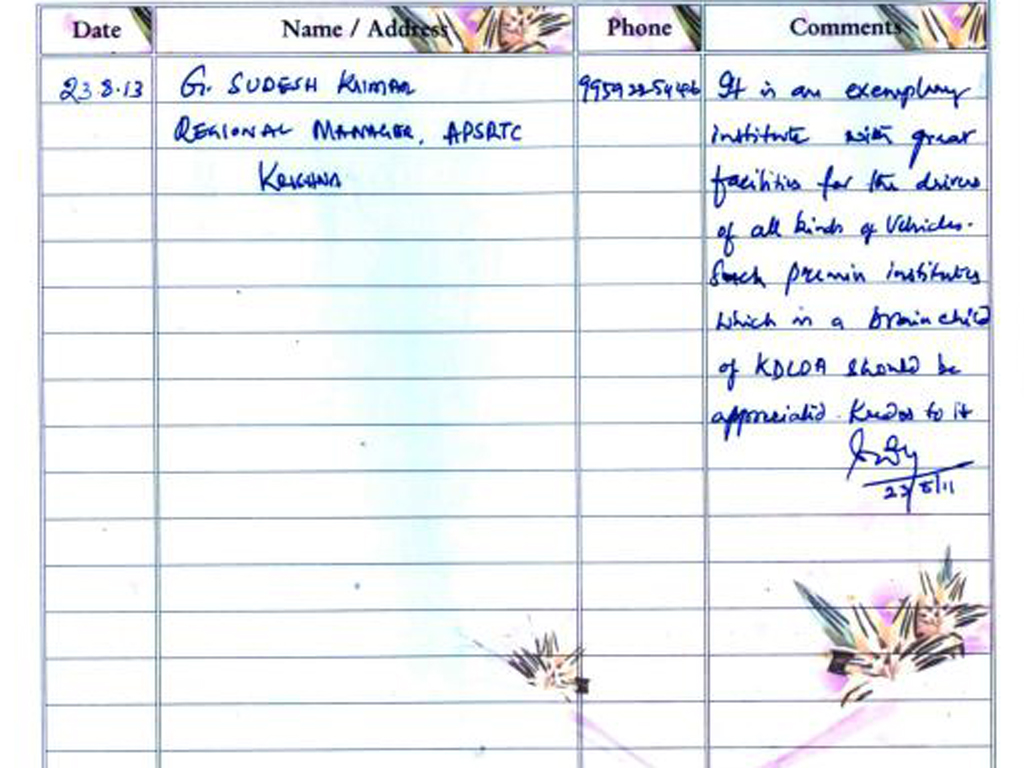 Date Name / Address Phone Comments
23.8.13 G. SUDESH KUMAR 9959225446 It is an exemplary
REGIONAL MANAGER, APSRTC institute with great
KRISHNA facilities for the drivers
of all kinds of Vehicles.
Such premier institutes
which is a brain child
of KDLOA should be
appreciated. Kudos to it